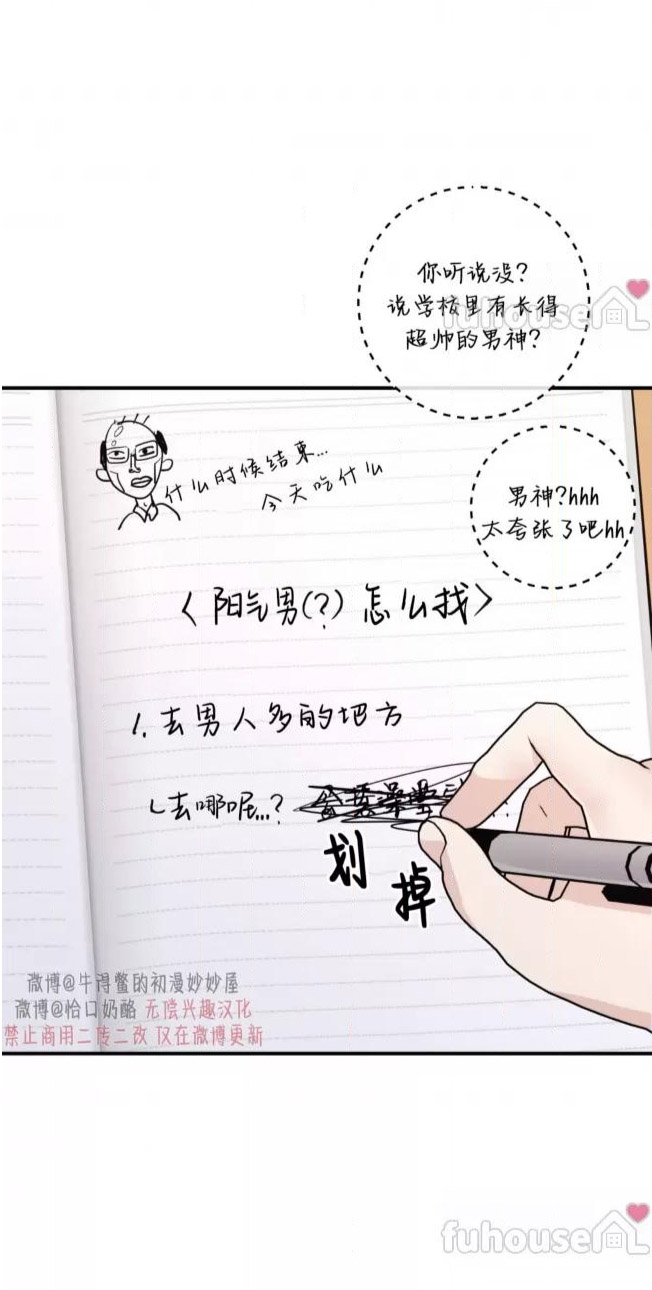 你听说没?
说学校里有长得
超帅的男神?
fuhouse
男神?hhh
太夸张了吧hh
什么时候结束...
今天吃什么
〈阳气男(?)怎么找〉
1.去男人多的地方
去哪呢...?
划掉
微博@牛得鳖的初漫妙妙屋
微博@恰口奶酪 无偿兴趣汉化
禁止商用二传二改 仅在微博更新
fuhouse